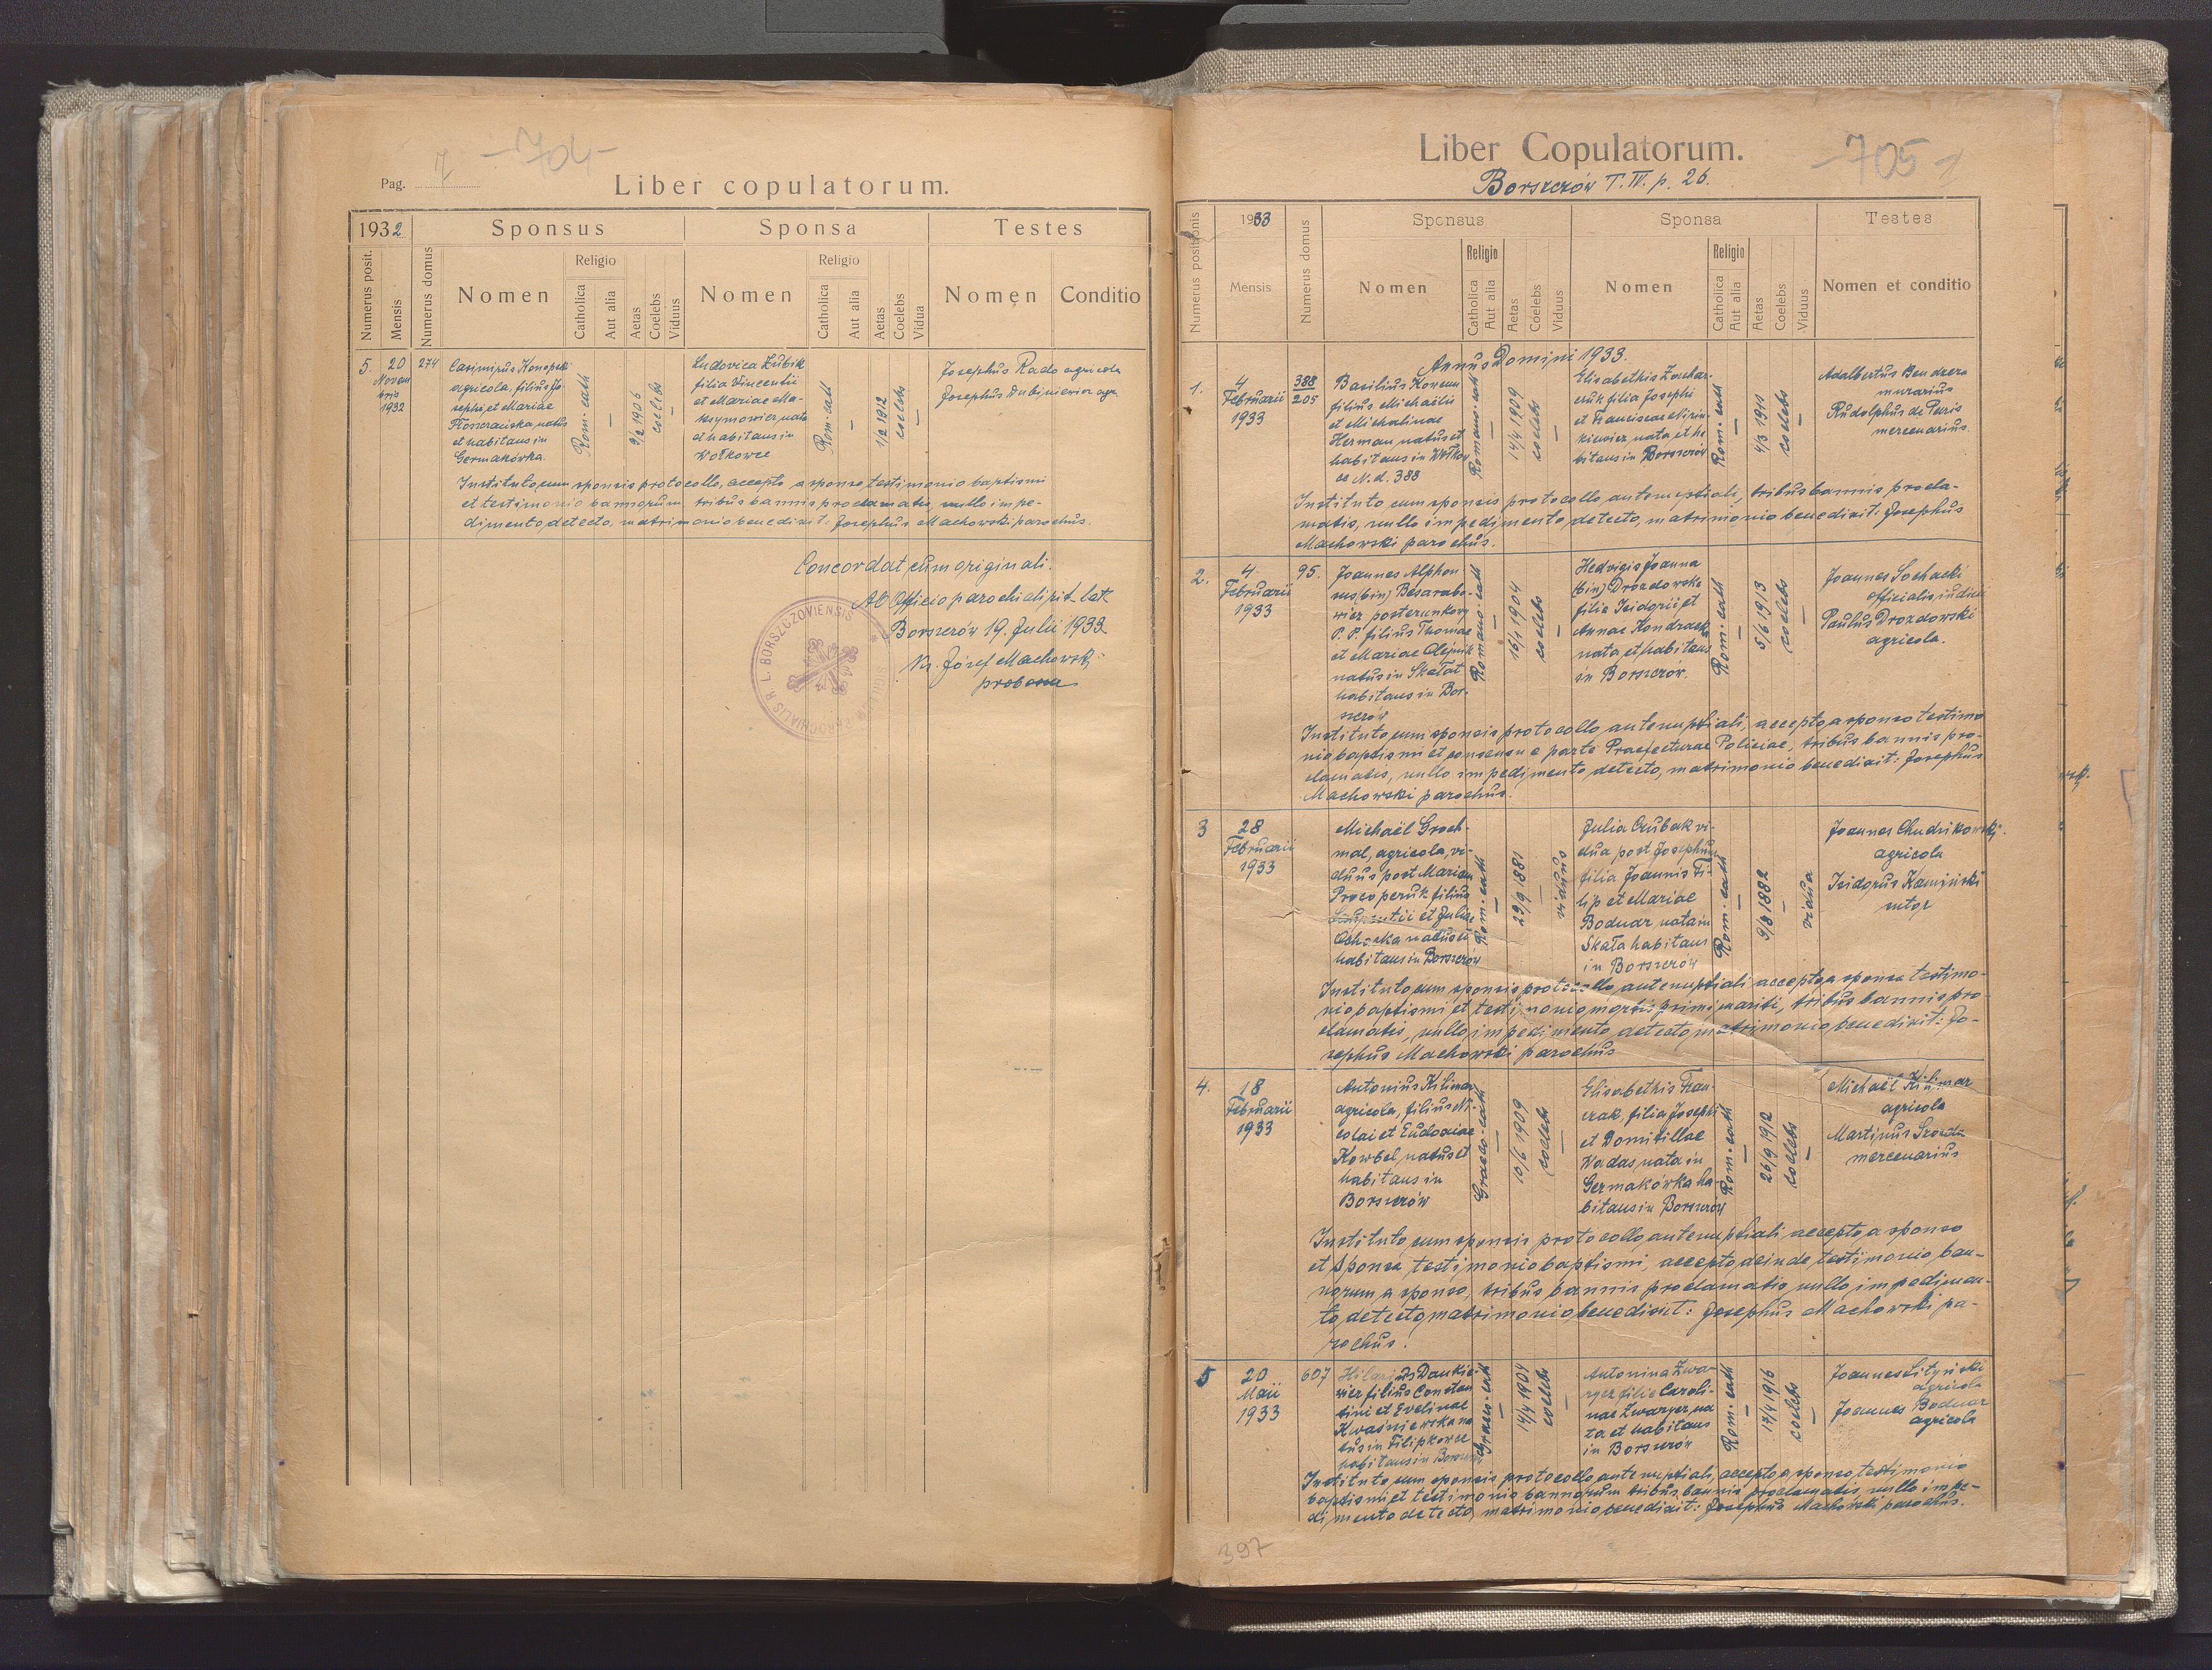 Pag. 7 -704-
Liber copulatorum.
1932 Sponsus Sponsa Testes
Numerus posit. Mensis Numerus domus Nomen Religio Catholica Aut alia Aetas Coelebs Viduus Nomen Religio Catholica Aut alia Aetas Coelebs Vidua Nomen Conditio
5. 20 Novembris 1932 274
Casimirus Konopski
agricola, filius Jo-
sephi et Mariae
natus
et habitans in
Germakówka.
Rom. cath
—
9/2 1906
coelebs
—
Ludovica Zubik
filia Vincentii
et Mariae Ma-
ksymowicz, nata
et habitans in
Wołkowce
Rom. cath
—
1/2 1912
coelebs
—
Josephus Rado agricola
Josephus Dubiniewicz agr.
Instituto cum sponsis protocollo, accepto a sponso testimonio baptismi
et testimonio bannorum tribus bannis proclamatis, nullo impe-
dimento detecto, matrimonio benedixit: Josephus Machowski parochus.
Concordat cum originali.
Ab Officio parochiali rit. lat.
Borszczów 19. Julii 1933
Ks. Józef Machowski
proboszcz
R. L. BORSZCZOVIENSIS
Liber Copulatorum. -705-
Borszczów T. IV. p. 26.
Numerus positionis 1933 Mensis Numerus domus Sponsus Nomen Religio Catholica Aut alia Aetas Coelebs Viduus Sponsa Nomen Religio Catholica Aut alia Aetas Coelebs Viduus Testes Nomen et conditio
Annus Domini 1933.
1. 4 Februarii 1933 388 205
Basilius
filius Michaëlis
et Michalinae
Herman natus et
habitans in Wołkow
ce N. d. 388
Romano. cath
—
14/4 1909
coelebs
—
Elisabethis Zachar-
czuk filia Josephi
et Franciscae
nata et ha
bitans in Borszczów
Rom. cath
—
4/3 1911
coelebs
—
Adalbertus Bendzera
murarius
Rudolphus de Peris
mercenarius.
Instituto cum sponsis protocollo antenuptiali, tribus bannis procla-
matis, nullo impedimento detecto, matrimonio benedixit: Josephus
Machowski parochus.
2. 4 Februarii 1933 95.
Joannes Alphon
sus (bin) Besarabo-
wicz posterunkowy
P. P. filius Thomae
et Mariae Olejnik
natus in Skałat
habitans in Bor-
szczów
Romano. cath
—
16/1 1904
coelebs
—
Hedvigis Joanna
(bin) Drozdowska
filia Isidorii et
Annae Kondracka
nata et habitans
in Borszczów.
Rom. cath
—
5/6 1913
coelebs
—
Joannes Sochacki
officialis iudicii
Paulus Drozdowski
agricola.
Instituto cum sponsis protocollo antenuptiali, accepto a sponso testimo
nio baptismi et consensu e parte Praefecturae Policiae, tribus bannis pro-
clamatis, nullo impedimento detecto, matrimonio benedixit: Josephus
Machowski parochus.
3 28 Februarii 1933
Michaël Groch-
mal, agricola, vi-
duus post Mariam
Procoperuk filius
et Juliae
natus et
habitans in Borszczów
Rom. cath
—
29/9 1881
—
viduus
Julia Czubak vi-
dua post Josephum
filia Joannis Fi-
lip et Mariae
Bodnar nata in
Skała habitans
in Borszczów
Rom. cath
—
9/8 1882
—
vidua
Joannes Chudzikowski
agricola
Isidorus Kamiński
sutor
Instituto cum sponsis protocollo antenuptiali accepto a sponsa testimo-
nio baptismi et testimonio mortis primi mariti, tribus bannis pro-
clamatis, nullo impedimento detecto matrimonio benedixit: Jo-
sephus Machowski parochus
4. 18 Februarii 1933
Antonius Kilimar
agricola, filius Ni-
colai et Eudoxiae
Kowbel, natus et
habitans in
Borszczów
Graeco-cath
—
10/6 1909
coelebs
—
Elisabethis Fran-
czak, filia Josephi
et Domitillae
Wodas nata in
Germakówka ha-
bitans in Borszczów
Rom. cath
—
26/9 1912
coelebs
—
Michaël Kilimar
agricola
Martinus Szozda
mercenarius
Instituto cum sponsis protocollo antenuptiali accepto a sponso
et sponsa testimonio baptismi, accepto deinde testimonio ban-
norum a sponso, tribus bannis proclamatis nullo impedimen-
to detecto matrimonio benedixit: Josephus Machowski pa-
rochus.
5 20 Maii 1933 607
Hilarius Dankie-
wicz filius Constan
tini et Evelinae
Kwaśniewska na
tus in Filipkowce
habitans in Borszczów
Graeco-cath
—
14/4 1904
coelebs
—
Antonina Zwa-
rycz filia Caroli-
nae Zwarycz, na
ta et habitans
in Borszczów
Rom. cath
—
17/4 1916
coelebs
—
Joannes Lityński
agricola
Joannes Bodnar
agricola
Instituto cum sponsis protocollo antenuptiali, accepto a sponso testimonio
baptismi et testimonio bannorum tribus bannis proclamatis, nullo impe-
dimento detecto, matrimonio benedixit: Josephus Machowski parochus.
397